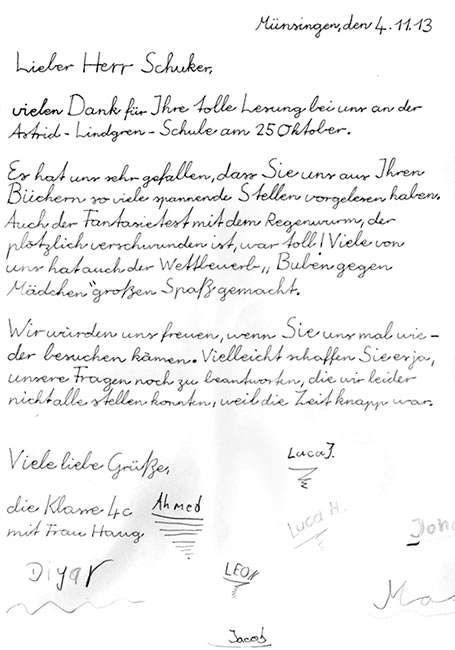 Münsingen, den 4.11.13
Lieber Herr Schuker,
vielen Dank für Ihre tolle Lesung bei uns an der
Astrid-Lindgren-Schule am 25 Oktober.
Es hat uns sehr gefallen, dass Sie uns aus Ihren
Büchern so viele spannende Stellen vorgelesen haben.
Auch der Fantasietest mit dem Regenwurm, der
plötzlich verschwunden ist, war toll! Viele von
uns hat auch der Wettbewerb „Buben gegen
Mädchen“ großen Spaß gemacht.
Wir würden uns freuen, wenn Sie uns mal wie-
der besuchen kämen. Vielleicht schaffen Sie es ja,
unsere Fragen noch zu beantworten, die wir leider
nicht alle stellen konnten, weil die Zeit knapp war.
Viele liebe Grüße,
die Klasse 4c
mit Frau Haug
Luca J.
Ahmed
Luca H.
Diyar
LEON
Jacob